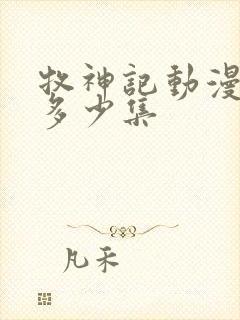 牧神記動漫
多少集
凡禾